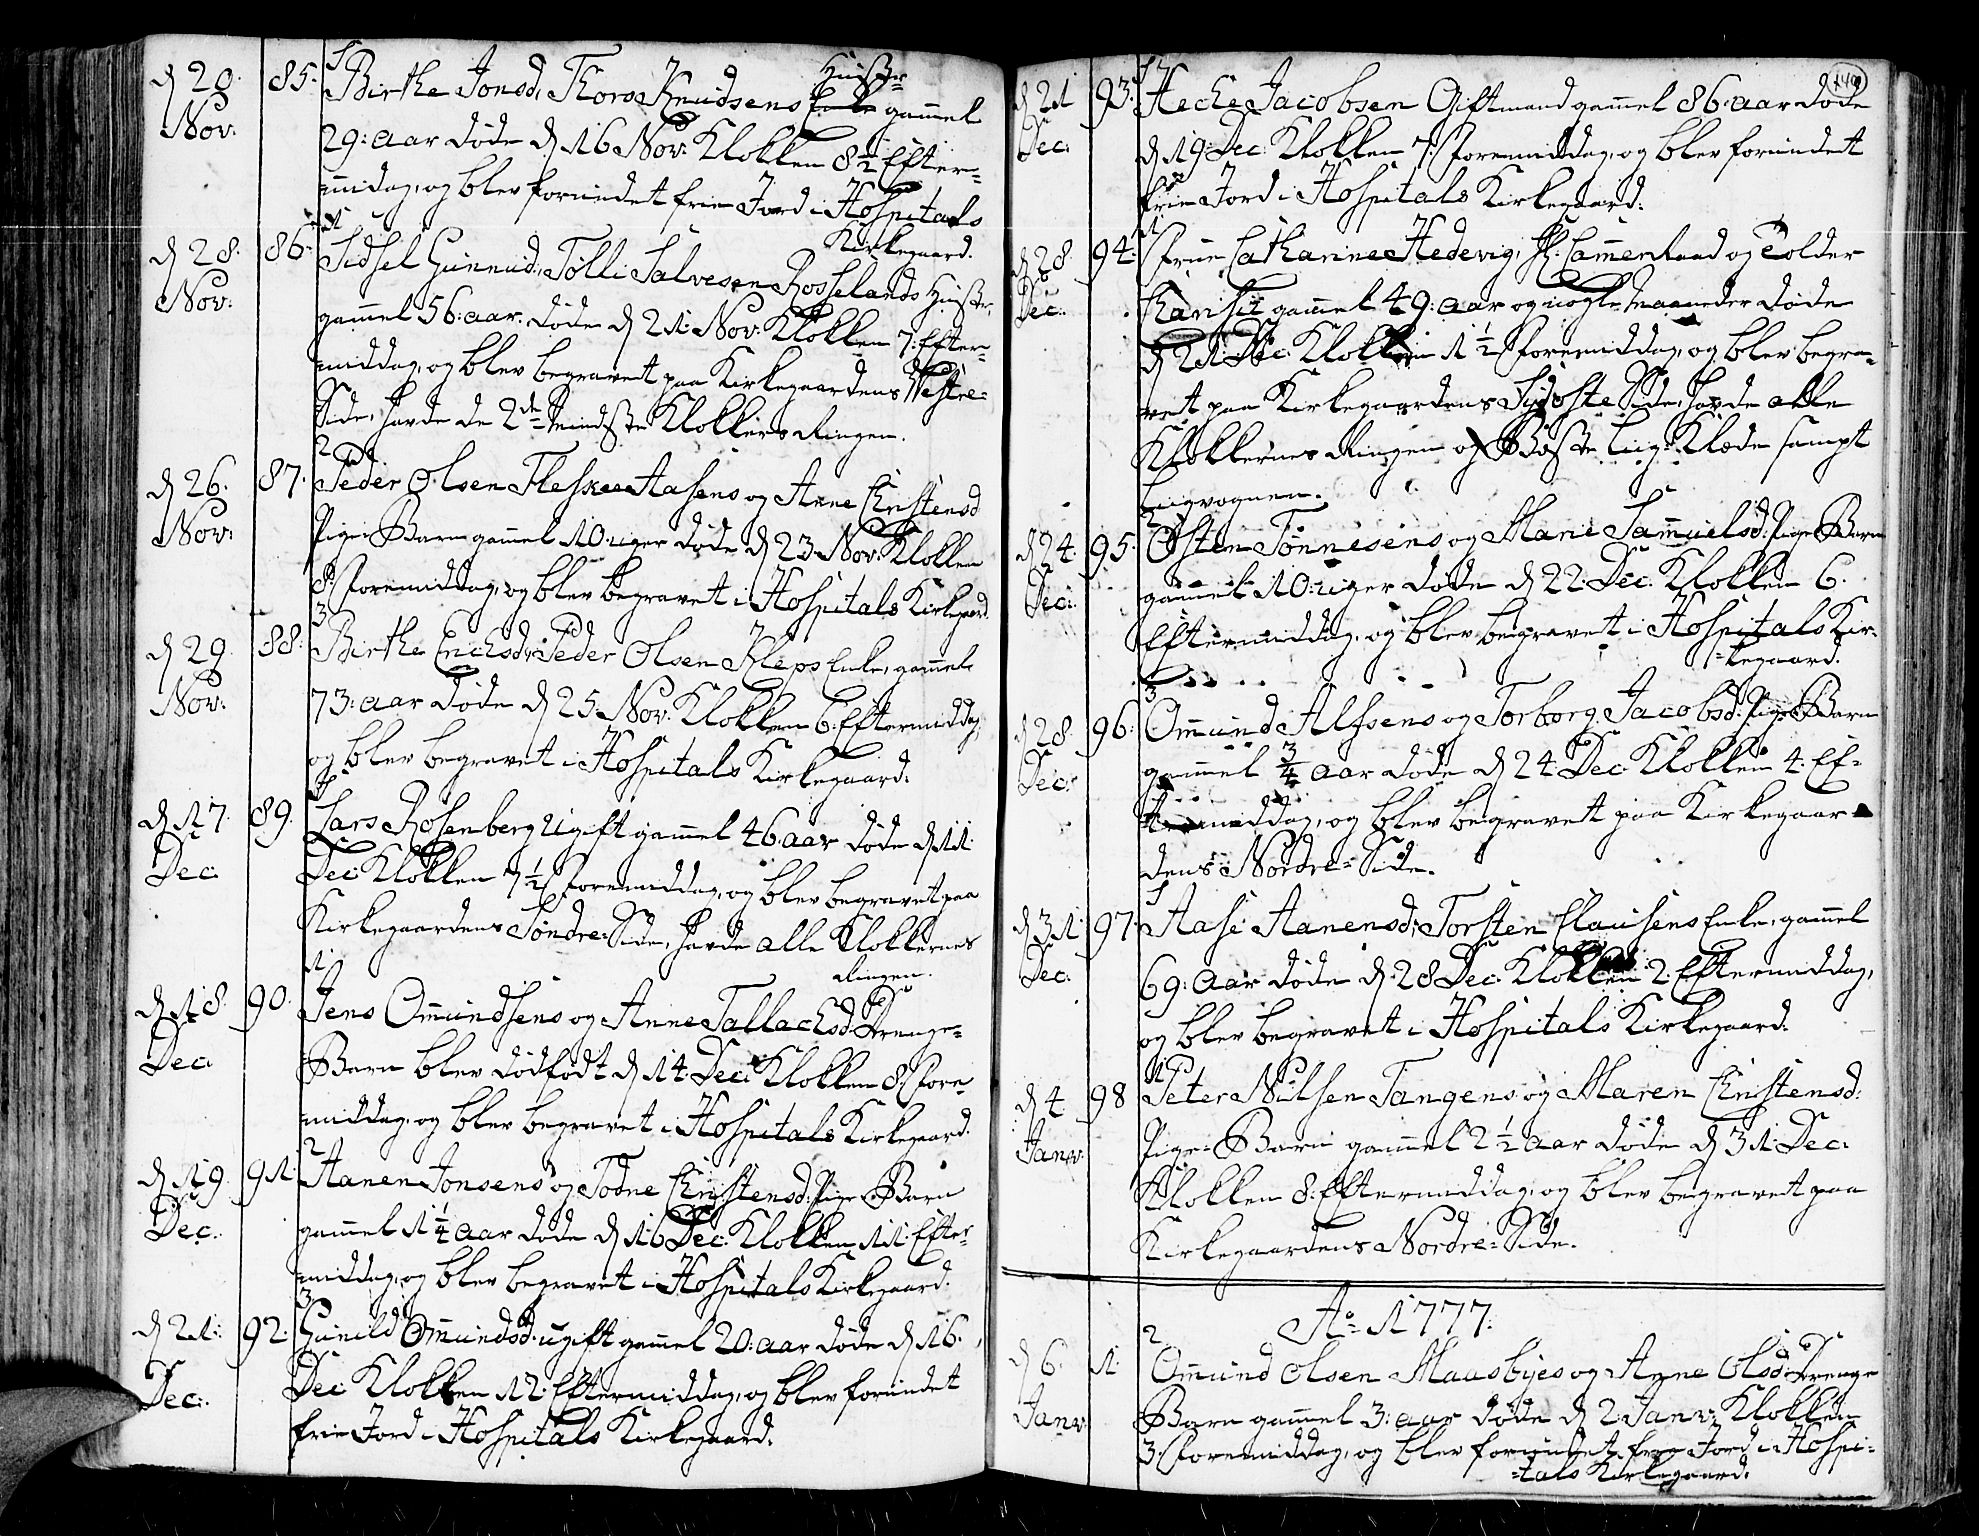 d 20. 85. Birthe Jonsd, Thore Knudsens Enke Hustr: gammel
Nov: 29: aar døde d 16 Nov: Klokken 8 1/2 Efter=
middag, og blev forundet frie Jord i Hospitals
Kirkegaard.
1
d 28. 86. Sidsel Gunnuld, Tølli Salvesen Rosselands Hustr,
Nov: gammel 56: aar. døde d 21 Nov: Klokken 7. Efter=
middag, og blev begravet paa Kirkegaardens Westre=
Side, havde de 2de mindste Klokkers Ringen.
2
d 26. 87. Peder Olsen Aasens og Anne Christensd
Nov: Pige-Barn gammel 10: uger døde d 23 Nov: Klokken
8 Formiddag, og blev begravet i Hospitals Kirkegaard
3
d 29. 88. Birthe Erichsd, Peder Olsen Kleps Enke, gammel
Nov: 73: aar døde d 25 Nov: Klokken 6. Eftermiddag,
og blev begravet i Hospitals Kirkegaard.
d 17. 89. Lars Rosenberg Ugift gammel 46 aar døde d 11
Dec. Dec: Klokken 7 1/2 Formiddag, og blev begravet paa
Kirkegaardens Søndre=Side, havde alle Klokkernes
Ringen.
1
d 18. 90. Jens Ommundsens og Anne Tallachsd: Drenge=
Dec. Barn blev dødfødt d 14 Dec: Klokken 8. Fore=
middag, og blev begravet i Hospitals Kirkegaard.
2
d 19. 91. Aanen Jonsens og Todne Christensd: Pige-Barn
Dec: gammel 1 1/4 aar døde d 16 Dec: Klokken 11. Efter=
middag, og blev begravet i Hospitals Kirkegaard.
3
d 21: 92: Gunild Ommundsd: ugift gammel 20: aar døde d 16.
Dec: Dec: Klokken 12. Eftermiddag, og blev forundet
frie Jord i Hospitals Kirkegaard.
d 21 93. Heche Jacobsen Giftmand gammel 86: aar døde
Dec: d 19 Dec: Klokken 7. Formiddag, og blev forundet
frie Jord i Hospitals Kirkegaard.
1
d 28. 94. Frue Catharine Hedevig, Cammerraad og Tolder
Dec: gammel 49: aar og nogle Maaneder døde
d 21 Dec: Klokken 1 1/2 Formiddag, og blev begra=
vet paa Kirkegaardens Sydoste Side, havde alle
Klokkernes Ringen og Bæste Liig=Klæde sampt
Liigvognen.
2
d 24. 95. Østen Tønnesens og Marie Sammuelsd: Pige-Barn
Dec: gammel 10: uger døde d 22: Dec: Klokken 6.
Eftermiddag, og blev begravet i Hospitals Kir=
=kegaard.
3
d 28. 96. Ommund Alfsens og Torborg Jacobsd: Pige-Barn
Dec: gammel 3/4 aar døde d 24 Dec: Klokken 4. Ef=
termiddag, og blev begravet paa Kirkegaar=
dens Nordre=Side.
d 31. 97. Aase Aanensd: Torsten Clausens Enke, gammel
Dec: 69: aar døde d. 28 Dec: Klokken 2. Eftermiddag,
og blev begravet i Hospitals Kirkegaard.
1
d 4 98 Peter Nilsen Tangens og Maren Christensd:
Janv: Pige-Barn gammel 2 1/2 aar døde d 31. Dec:
Klokken 8. Eftermiddag, og blev begravet paa
Kirkegaardens Nordre=Side.
Ao 1777.
2
d 6. 1. Ommund Olsen Maasbyes og Anne Olsd: Drenge
Janv: Barn gammel 3: aar døde d 2 Janv: Klokken
3. Formiddag, og blev forundet frie Jord i Hospi=
=tals Kirkegaard.